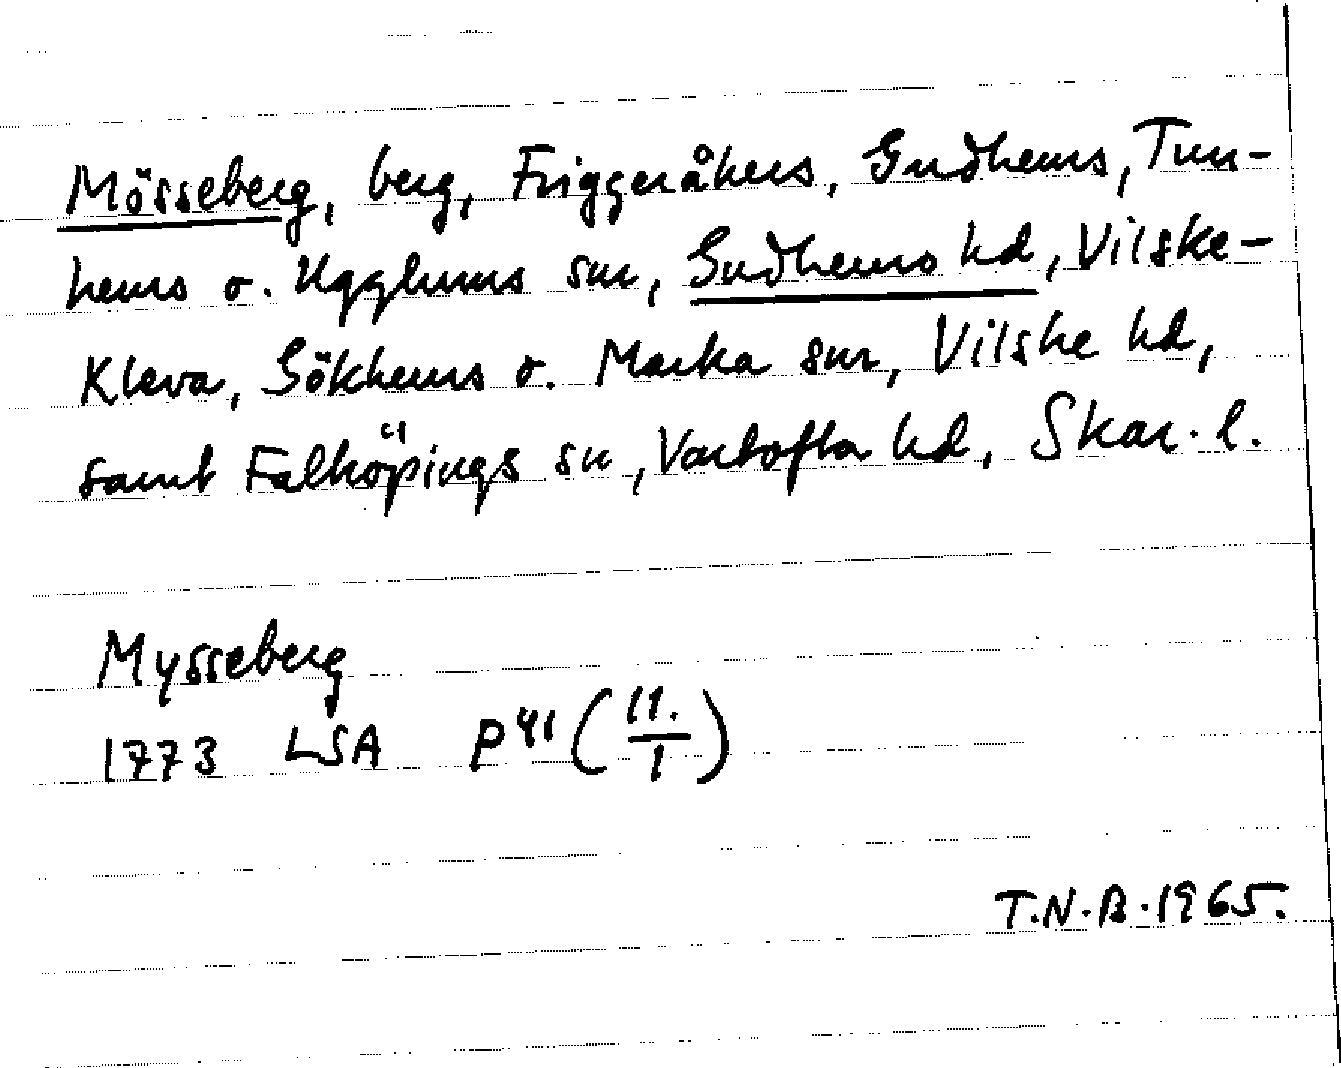 Mösseberg, berg, Friggeråkers, Gudhems, Tun-
hems o. Ugglums snr, Gudhems hd, Vilske-
Kleva, Sökhems o. Marka snr, Vilske hd,
samt Falköpings sn, Vartofta hd, Skar. l.
Mysseberg
1773 LSA P41 (11./1)
T.N.B. 1965.